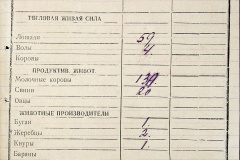 ТЯГЛОВАЯ ЖИВАЯ СИЛА
Лошади 59
Волы 4.
Коровы
ПРОДУКТИВН. ЖИВОТ.
Молочные коровы
Свиньи 20
Овцы
ЖИВОТНЫЕ ПРОИЗВОДИТЕЛИ
Бугаи 1.
Жеребцы 2.
Кнуры 1.
Бараны